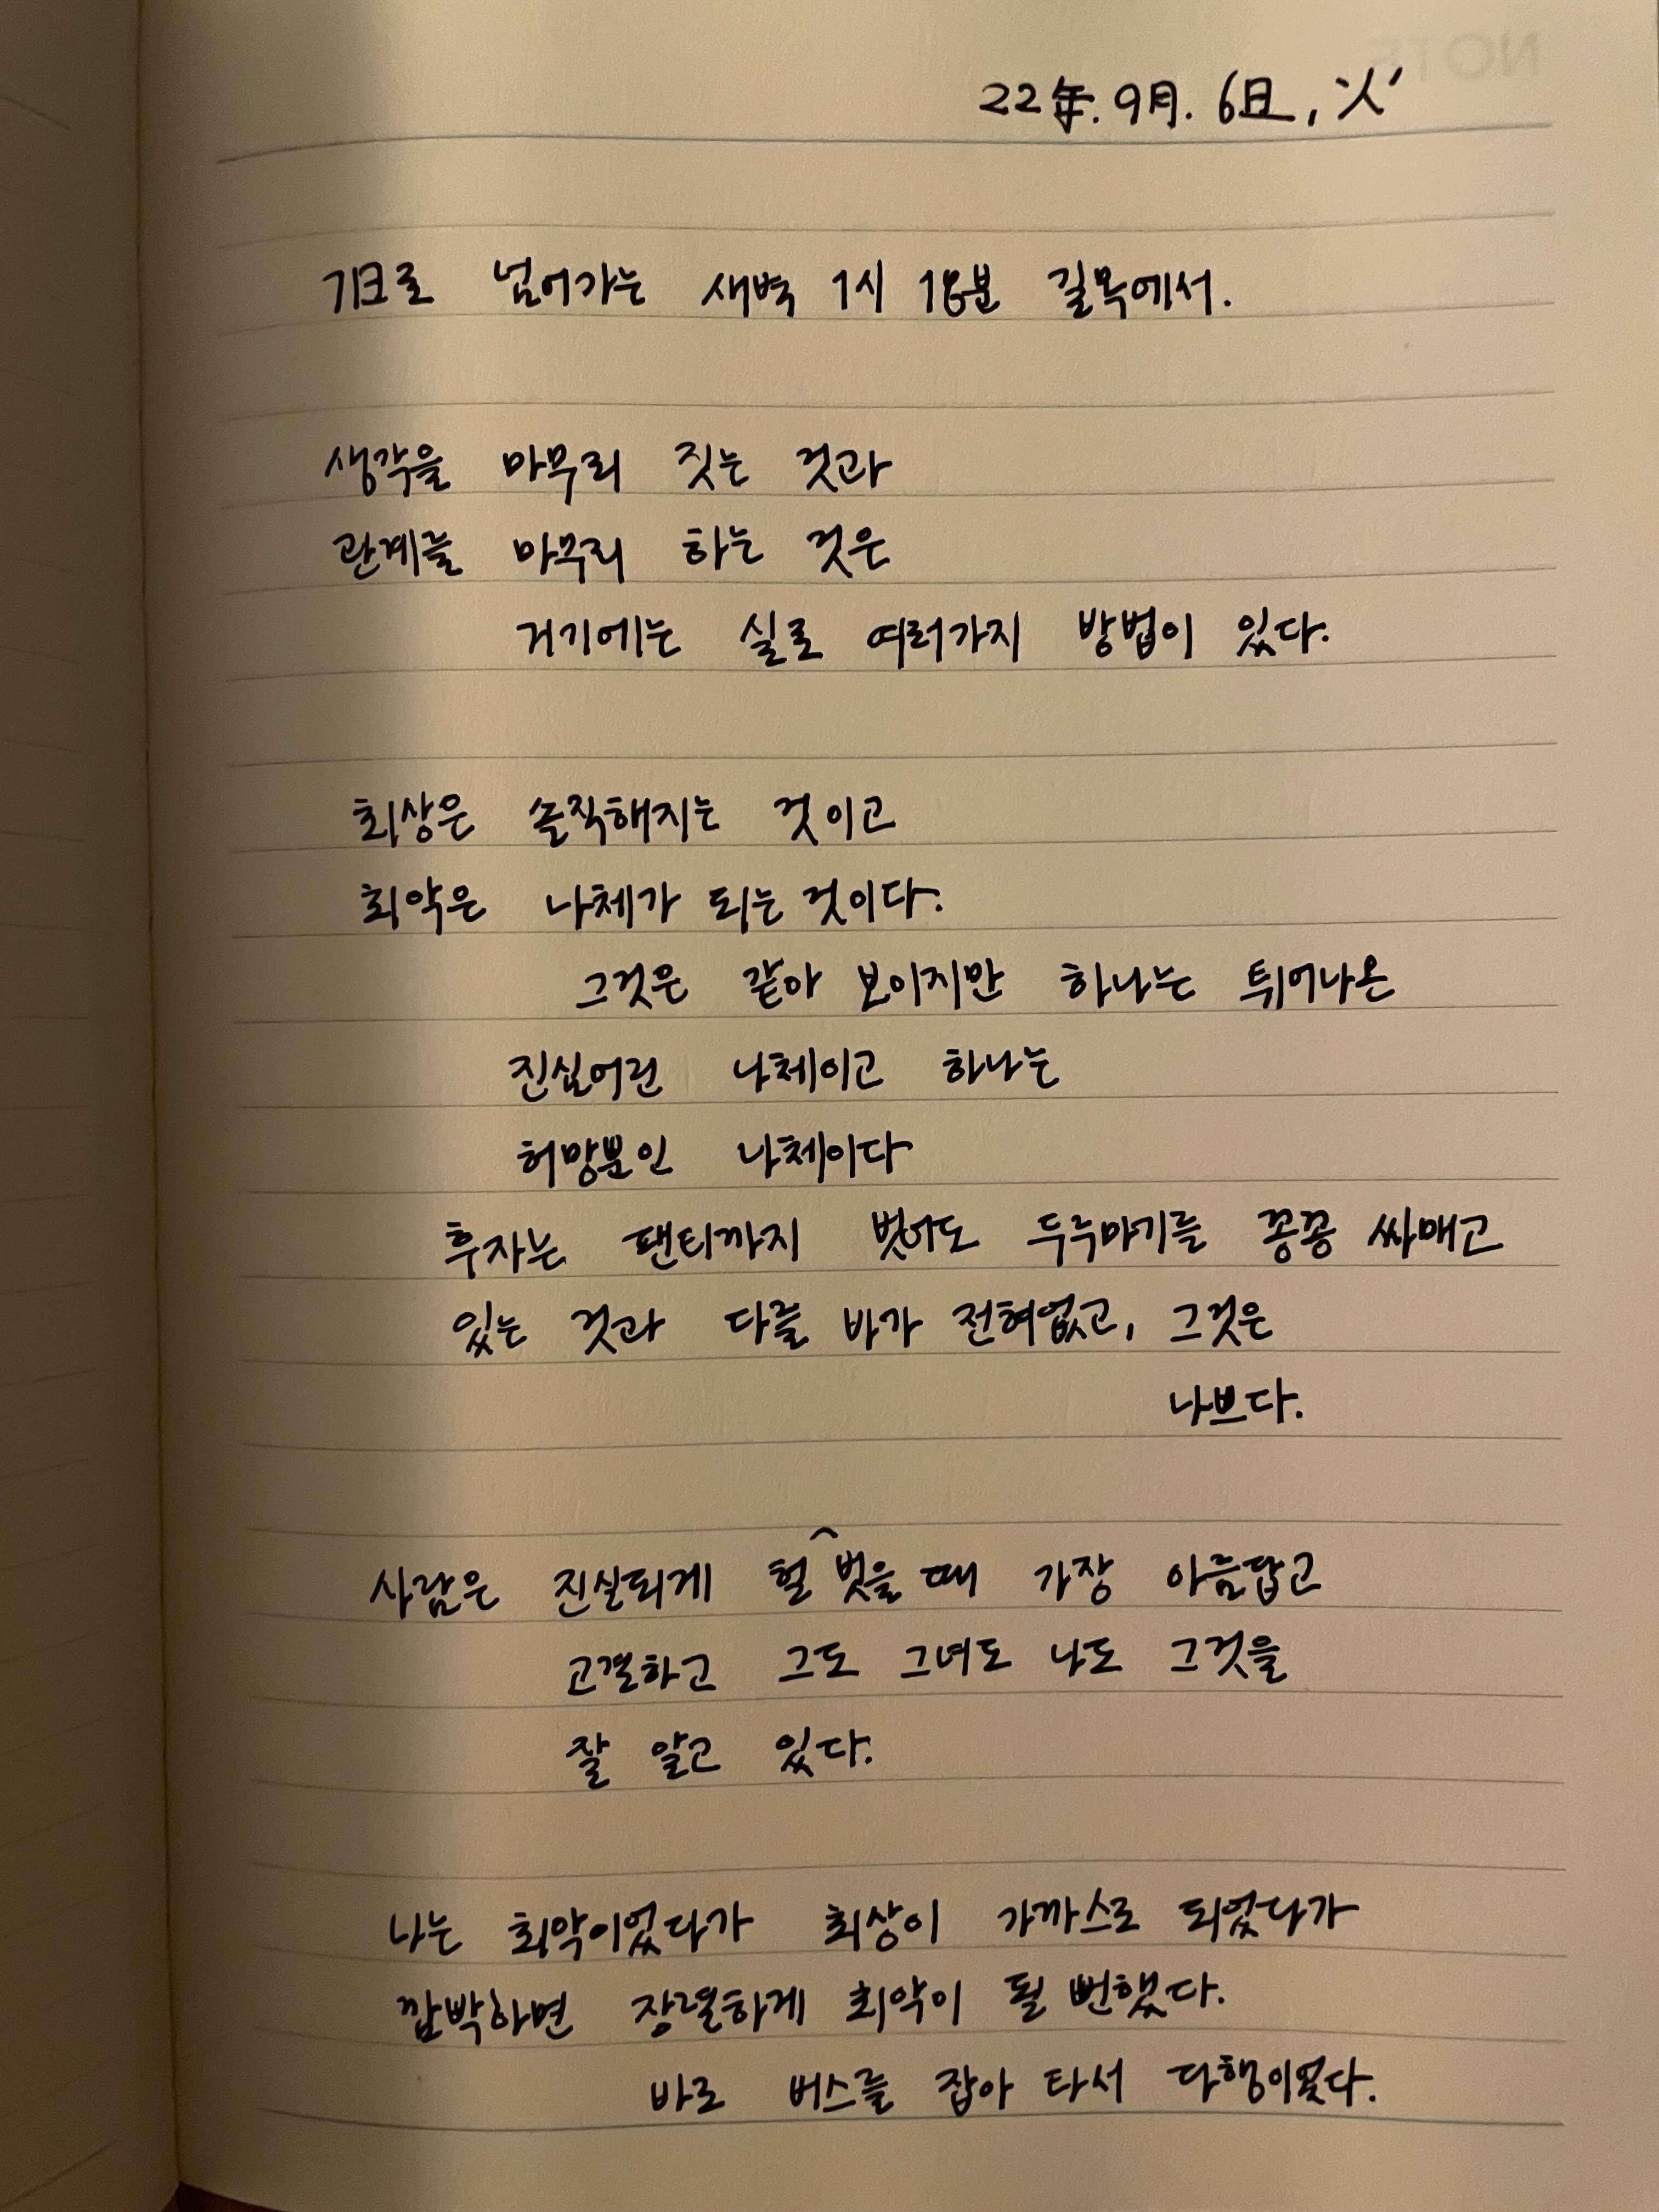 22年. 9月. 6日, 火
7日로 넘어가는 새벽 1시 18분 길목에서.
생각을 마무리 짓는 것과
관계를 마무리 하는 것은
거기에는 실로 여러가지 방법이 있다.
최상은 솔직해지는 것이고
최악은 나체가 되는 것이다.
그것은 같아 보이지만 하나는 튀어나온
진심어린 나체이고 하나는
허망뿐인 나체이다
후자는 팬티까지 벗어도 두루마기를 꽁꽁 싸매고
있는 것과 다를 바가 전혀없고, 그것은
나쁘다.
사람은 진실되게 헐벗을 때 가장 아름답고
고결하고 그도 그녀도 나도 그것을
잘 알고 있다.
나는 최악이었다가 최상이 가까스로 되었다가
깜박하면 장렬하게 최악이 될 뻔했다.
바로 버스를 잡아 타서 다행이었다.